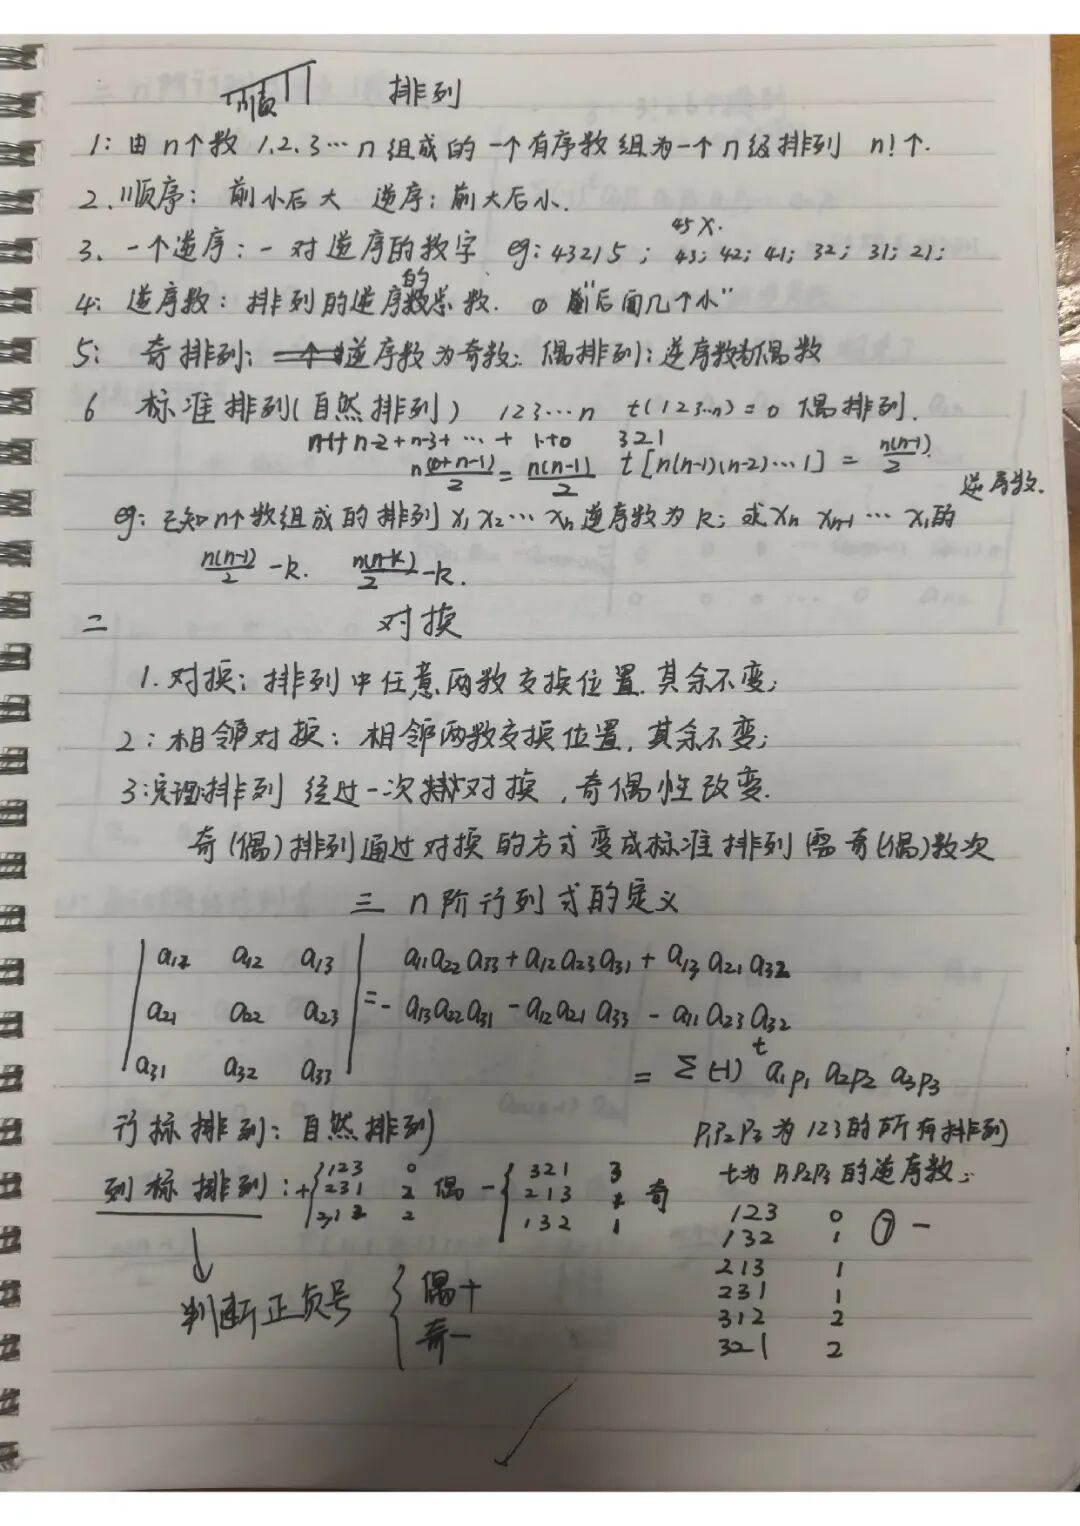 顺 排列
1: 由n个数 1.2.3…n 组成的一个有序数组为一个n级排列 n!个.
2. 顺序: 前小后大 逆序: 前大后小.
45 X.
3. 一个逆序: 一对逆序的数字 eg: 43215 ; 43; 42; 41; 32; 31; 21;
的
4: 逆序数: 排列的逆序总数. ① "后面几个小"
5: 奇排列: 逆序数为奇数; 偶排列: 逆序数为偶数
6 标准排列(自然排列) 123…n t(123…n)=0 偶排列.
n-1+n-2+n-3+…+1+0 321
n(0+n-1)/2 = n(n-1)/2 t[n(n-1)(n-2)…1] = n(n-1)/2.
逆序数.
eg: 已知n个数组成的排列x₁x₂…xₙ逆序数为k; 求xₙ xₙ₋₁…x₁的
n(n-1)/2 -k. n(n-k)/2 -k.
二 对换
1. 对换: 排列中任意两数交换位置. 其余不变;
2: 相邻对换: 相邻两数交换位置, 其余不变;
3: 定理: 排列 经过一次对换, 奇偶性改变.
奇(偶)排列通过对换的方式变成标准排列需奇(偶)数次
三 n阶行列式的定义
a₁₁ a₁₂ a₁₃ a₁₁a₂₂a₃₃+a₁₂a₂₃a₃₁+a₁₃a₂₁a₃₂
a₂₁ a₂₂ a₂₃ =-a₁₃a₂₂a₃₁-a₁₂a₂₁a₃₃-a₁₁a₂₃a₃₂
a₃₁ a₃₂ a₃₃ = Σ(-1)ᵗ a₁p₁ a₂p₂ a₃p₃
行标排列: 自然排列 P₁P₂P₃为123的所有排列
列标排列: + 123 0 - 321 3 t为P₁P₂P₃的逆序数;
231 2 偶 213 奇
312 2 132 1
123 0
132 1 -
213 1
231 1
312 2
321 2
判断正负号 偶+
奇-